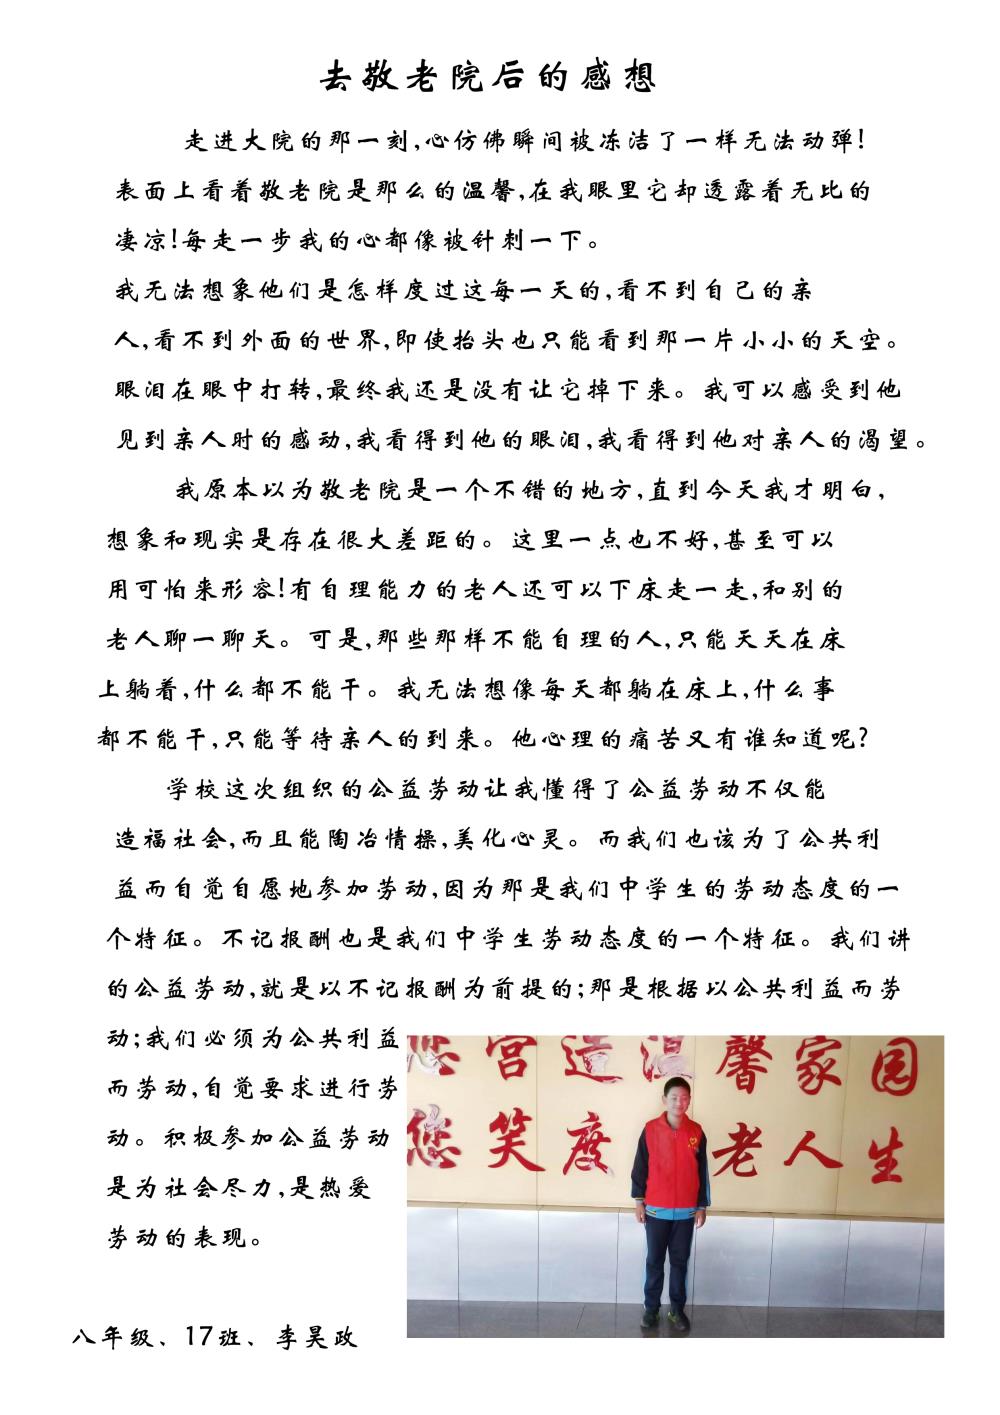 去敬老院后的感想
走进大院的那一刻,心仿佛瞬间被冻洁了一样无法动弹!
表面上看着敬老院是那么的温馨,在我眼里它却透露着无比的
凄凉!每走一步我的心都像被针刺一下。
我无法想象他们是怎样度过这每一天的,看不到自己的亲
人,看不到外面的世界,即使抬头也只能看到那一片小小的天空。
眼泪在眼中打转,最终我还是没有让它掉下来。我可以感受到他
见到亲人时的感动,我看得到他的眼泪,我看得到他对亲人的渴望。
我原本以为敬老院是一个不错的地方,直到今天我才明白,
想象和现实是存在很大差距的。这里一点也不好,甚至可以
用可怕来形容!有自理能力的老人还可以下床走一走,和别的
老人聊一聊天。可是,那些那样不能自理的人,只能天天在床
上躺着,什么都不能干。我无法想像每天都躺在床上,什么事
都不能干,只能等待亲人的到来。他心理的痛苦又有谁知道呢?
学校这次组织的公益劳动让我懂得了公益劳动不仅能
造福社会,而且能陶冶情操,美化心灵。而我们也该为了公共利
益而自觉自愿地参加劳动,因为那是我们中学生的劳动态度的一
个特征。不记报酬也是我们中学生劳动态度的一个特征。我们讲
的公益劳动,就是以不记报酬为前提的;那是根据以公共利益而劳
动;我们必须为公共利益
而劳动,自觉要求进行劳
动。积极参加公益劳动
是为社会尽力,是热爱
劳动的表现。
您营造温馨家园
您笑度老人生
八年级、17班、李昊政